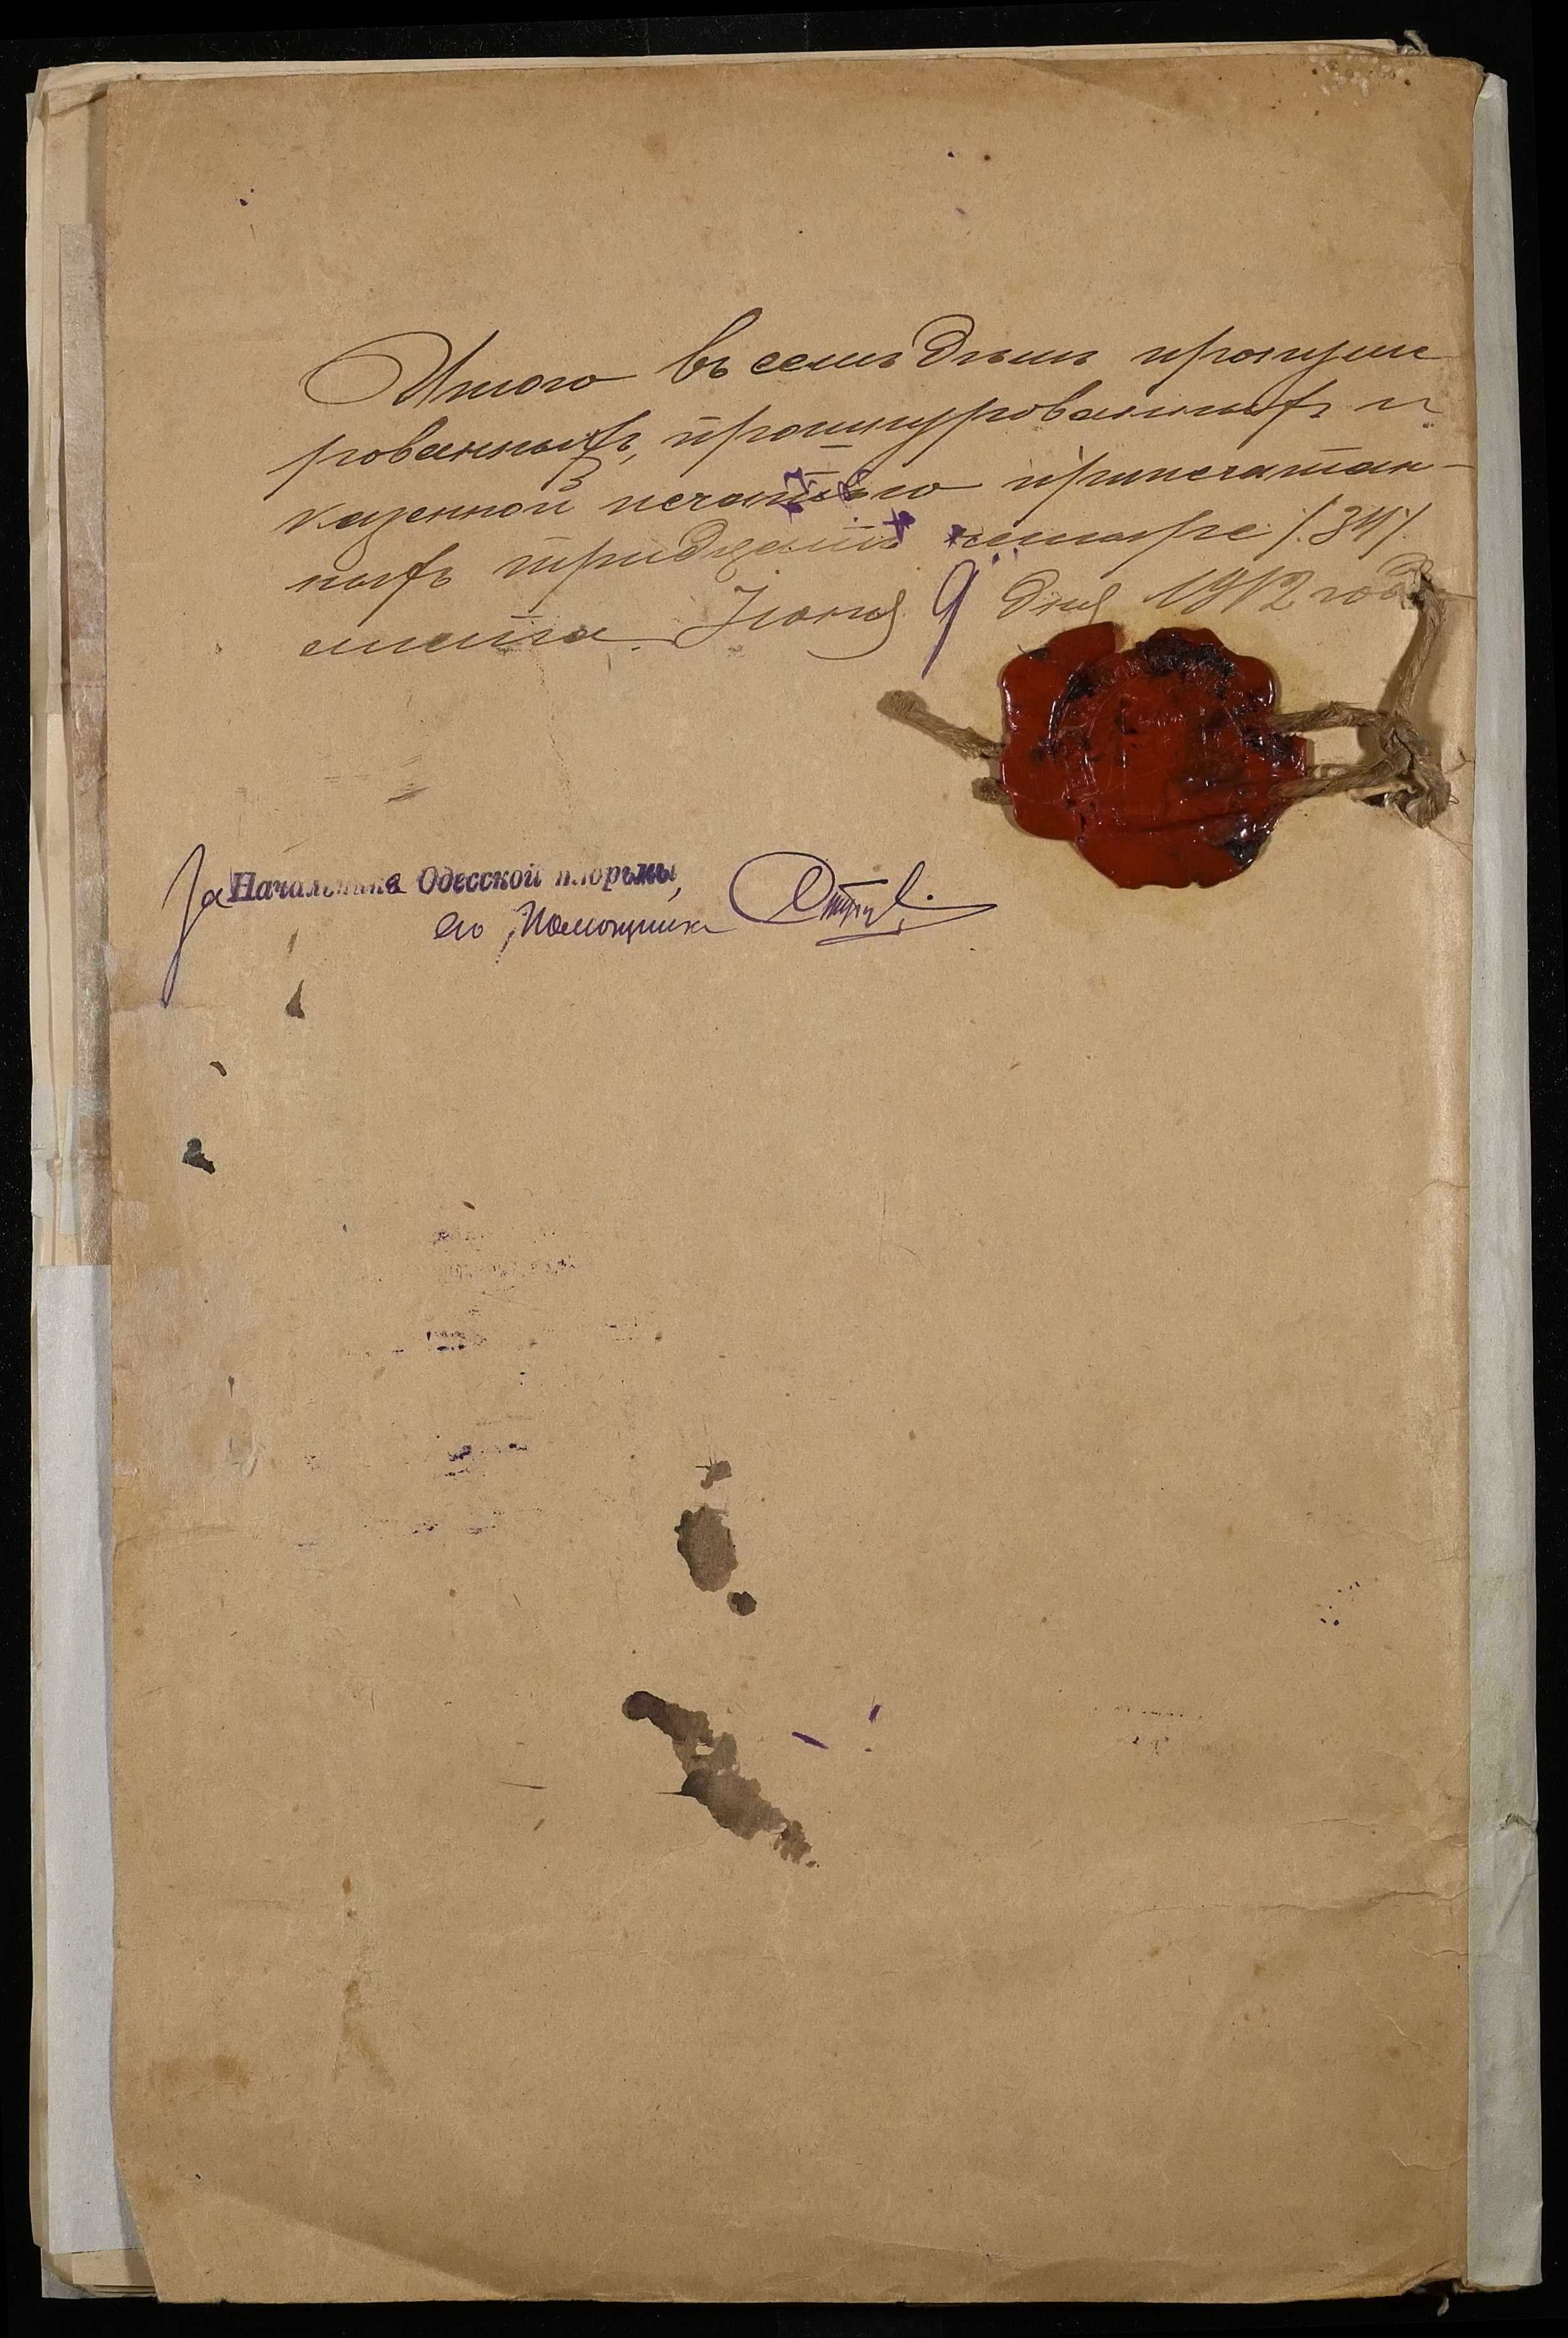 Итого въ семъ дѣлѣ пронуме
рованныхъ, прошнурованныхъ и
казенной печатью припечатан-
ныхъ тридцать четыре /34/.
листа. Іюня 9 дня 1912 года
За Начальника Одесской тюрьмы,
его Помощникъ